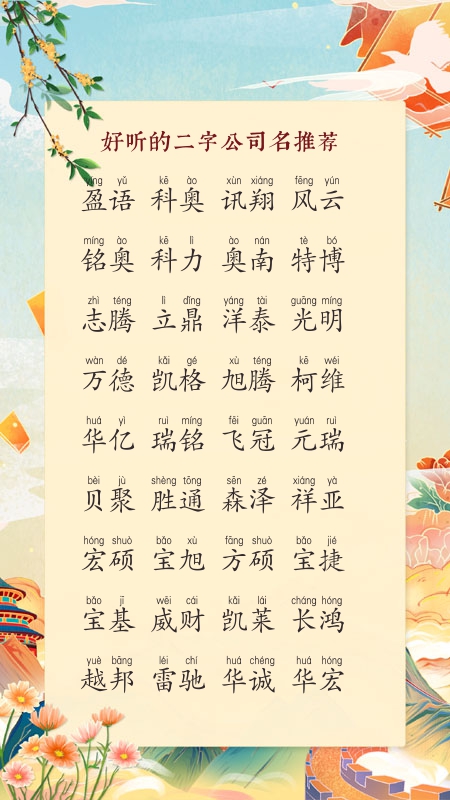 好听的二字公司名推荐
yíng yǔ kē ào xùn xiáng fēng yún
盈语 科奥 讯翔 风云
míng ào kē lì ào nán tè bó
铭奥 科力 奥南 特博
zhì téng lì dǐng yáng tài guāng míng
志腾 立鼎 洋泰 光明
wàn dé kǎi gé xù téng kē wéi
万德 凯格 旭腾 柯维
huá yì ruì míng fēi guān yuán ruì
华亿 瑞铭 飞冠 元瑞
bèi jù shèng tōng sēn zé xiáng yà
贝聚 胜通 森泽 祥亚
hóng shuò bǎo xù fāng shuò bǎo jié
宏硕 宝旭 方硕 宝捷
bǎo jī wēi cái kǎi lái cháng hóng
宝基 威财 凯莱 长鸿
yuè bāng léi chí huá chéng huá hóng
越邦 雷驰 华诚 华宏